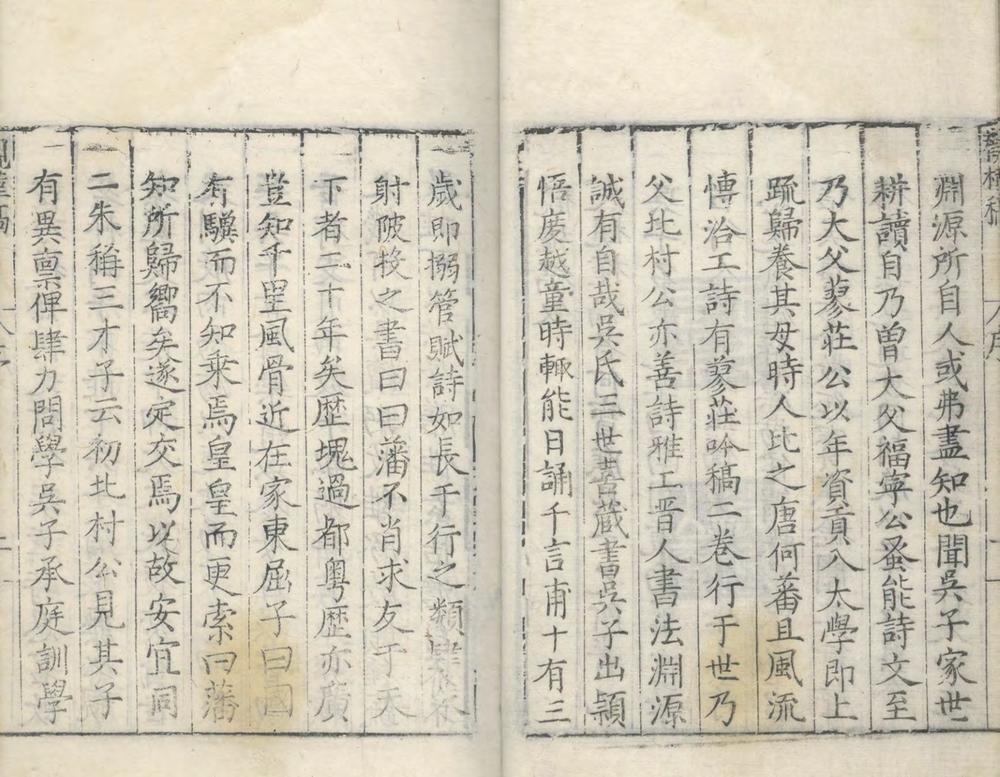 淵源所自人或弗盡知也聞吳子家世
耕讀自乃曽大父福寧公蚤能詩文至
乃大父蓼莊公以年資貢入太學即上
䟽歸養其母時人比之唐何蕃且風流
愽洽工詩有蓼莊吟稿二卷行于世乃
父北村公亦善詩雅工晋人書法淵源
誠有自哉吳氏三世耆蔵書吳子出穎
悟度越童時輙能日誦千言甫十有三
歲即搦管賦詩如長干行之類
射陂投之書曰曰藩不肖求友于天
下者二十年矣歷塊過都粤歷亦廣
豈知千里風骨近在家東屈子曰國
有驥而不知乗焉皇皇而更索曰藩
知所歸嚮矣遂定交焉以故安宜同
二朱稱三才子云初北村公見其子
有異禀俾肆力問學吳子承庭訓學